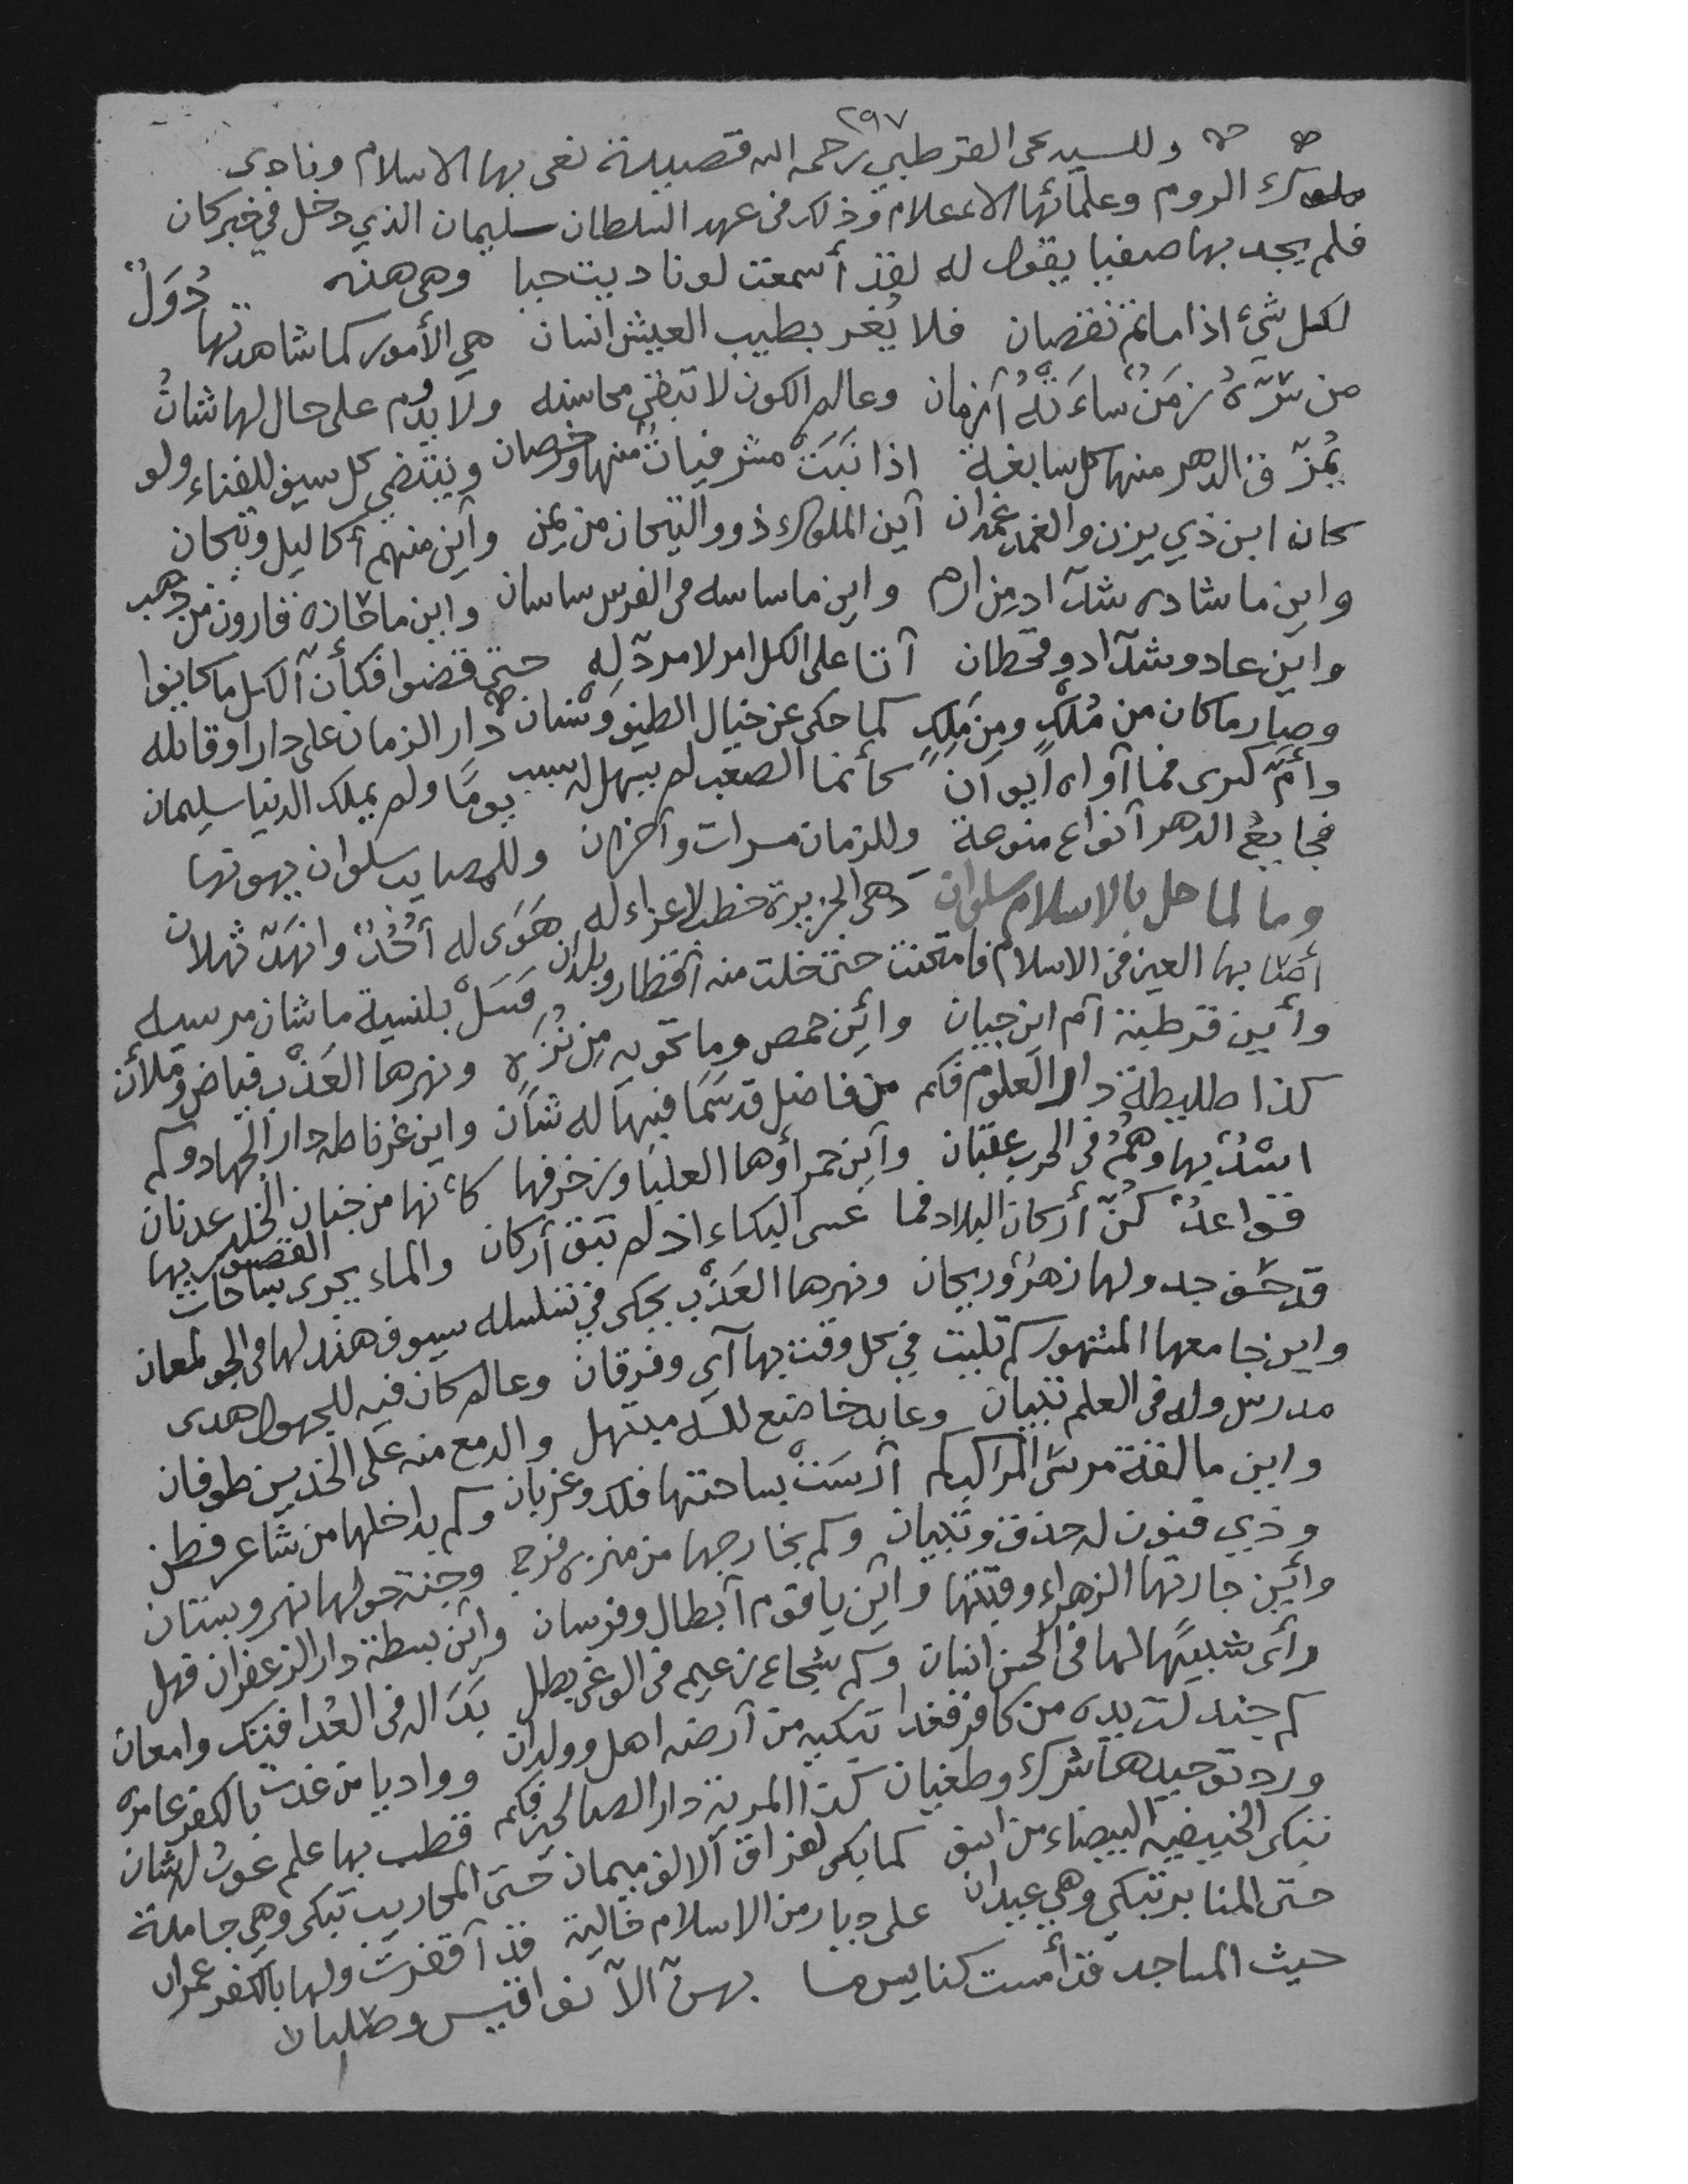 ٢٩٧
وللسيد يحى القرطبي رحمه الله قصيدة نعى بها الاسلام ونادى
ملوك الروم وعلمائها الاعلام وذلك فى عهد السلطان سليمان الذي دخل في خبر كان
فلم يجد بها صفيا يقول له لقد أسمعت لو ناديت حيا وهى هذه
لكل شيء اذا ما تم نقصان فلا يُغر بطيب العيش انسان هي الأمور كما شاهدتها دُوَلٌ
من سَرّهُ زمَنٌ ساءَتهُ أزمان وعالم الكون لا تبقى محاسنه ولا يدوم على حال لها شانُ
يُمزّق الدهر منها كل سابغة اذا نَبَتْ مشرفياتٌ منها وخرصان وينتضي كل سيف للفناء ولو
كان ابن ذي يزن والغمد غمدان أين الملوك ذوو التيجان من يمن وأين منهم أكاليل وتيجان
واين ما شاده شدّاد من ارم واين ما ساسه فى الفرس ساسان واين ما حازه قارون من ذهب
واين عاد وشدّاد وقحطان أتا على الكل امر لا مردّ له حتى قضوا فكأن الكل ما كانوا
وصار ما كان من مُلْكٍ ومن مَلِكٍ كما حكى عن خيال الطيف وسْنان دار الزمان على دارا وقاتله
وأمّ كسرى فما آواه ايوانٌ كأنما الصعب لم يسهل له سبب يومًا ولم يملك الدنيا سليمان
فجايعُ الدهر أنواع منوعة وللزمان مسرات وأحزان وللمصايب سلوان يهونها
وما لما حل بالاسلام سلوان دهى الجزيرة خطب لا عزاء له هَوَى له أُحُدٌ وانهَدّ ثهلان
أصابها العين فى الاسلام فامتحنت حتى خلت منه أقطار وبلدان فسَلْ بلنسية ما شان مرسيه
وأين قرطبة أم اين جيان وأين حمص وما تحويه مِن نُزَهٍ ونهرها العَذْب فياض وملأن
كذا طليطلة دار العلوم فكم من فاضل قد سَمَا فيها له شان واين غرناطه دار الجهاد وكم
اسْدٌ بها وهُمُ فى الحرب عقبان وأين حمرأؤها العليا وزخرفها كأنها من جنان الخلد عدنان
قواعدٌ كُنّ أركان البلاد فما عسى البكاء اذ لم تبق أركان والماء يجرى بساحات القصور بها
قد حف جدولها زهرٌ وريحان ونهرها العَذْب يحكى فى تسلسله سيوف هند لها فى الجو لمعان
واين جامعها المشهور كم تليت في كل وقت بها آي وفرقان وعالم كان فيه للجهول هدى
مدرس وله فى العلم تبيان وعابد خاضع لله مبتهل والدمع منه على الخدين طوفان
واين مالقة مرسى المراكب كم أرسَتْ بساحتها فلك وغربان وكم بداخلها من شاعر فطن
وذي فنون له حذق وتبيان وكم بخارجها من منزه فرج وجنة حولها نهر وبستان
وأين جارتها الزهراء وقبتها وأين يا قوم أبطال وفرسان وأين بسطة دار الزعفران فهل
رأى شبيهًا لها فى الحسن انسان وكم شجاع زعيم فى الوغى بطل بَدَا له فى العُدا فتك وامعان
كم جندلت يده من كافر فغدا تبكيه من أرضه اهل وولدان وواديا من غدت بالكفر عامره
ورد توحيدها شرك وطغيان كذا المرية دار الصالحين فكم قطب بها علم غوث له شان
تبكى الحنيفيه البيضاء من اسف كما بكى لفراق الالف هيمان حتى المحاريب تبكى وهي جامدة
حتى المنابر تبكي وهي عيدان على ديار من الاسلام خالية قد أقفرت ولها بالكفر عمران
حيث المساجد قد أمست كنايس ما بهنّ الاّ نواقيس وصلبان